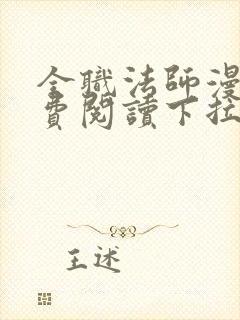 全職法師漫
費閱讀下拉
王述